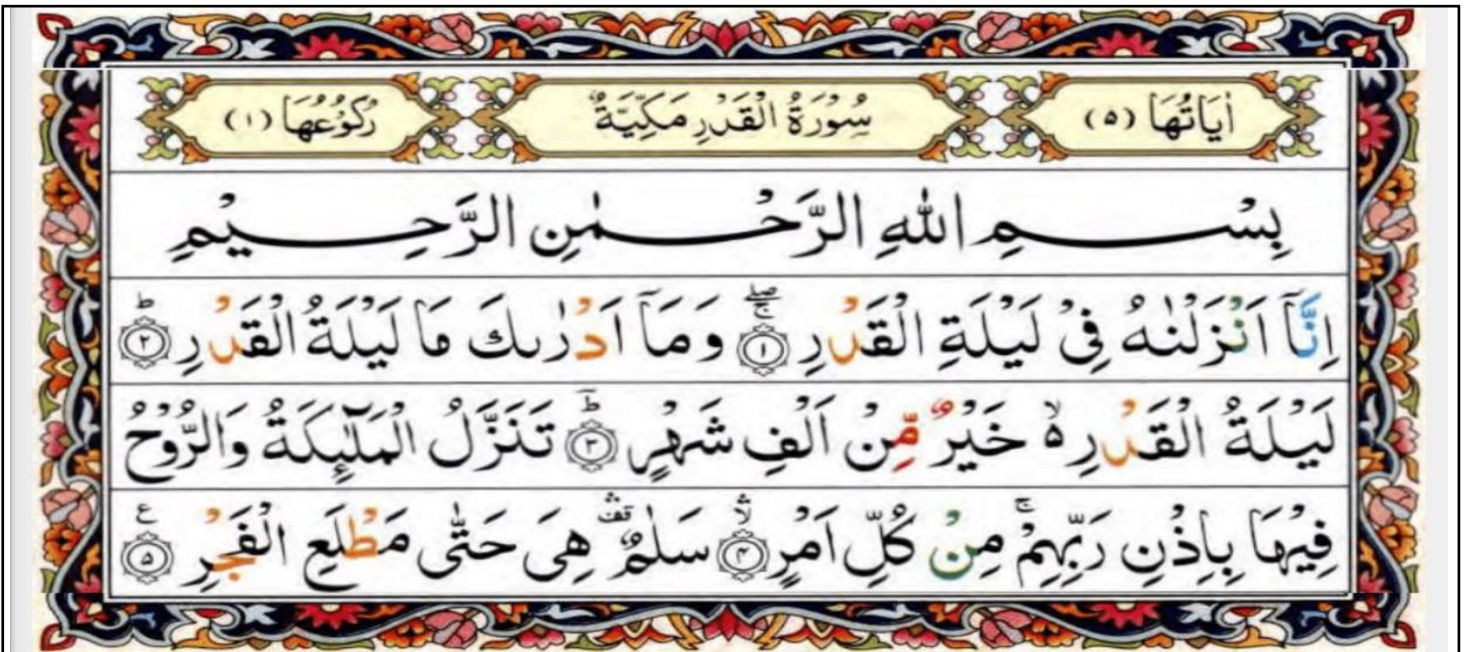 اٰيَاتُهَا (٥) سُوْرَةُ الْقَدْرِ مَكِّيَّةٌ رُكُوْعُهَا (١)
بِسْمِ اللّٰهِ الرَّحْمٰنِ الرَّحِيْمِ
اِنَّاۤ اَنْزَلْنٰهُ فِیْ لَيْلَةِ الْقَدْرِ ۚۖ‏ ﴿١﴾ وَمَاۤ اَدْرٰىكَ مَا لَيْلَةُ الْقَدْرِؕ ﴿٢﴾
لَيْلَةُ الْقَدْرِ ۙ۬ خَيْرٌ مِّنْ اَلْفِ شَهْرٍؕ ﴿٣﴾ تَنَزَّلُ الْمَلٰٓئِكَةُ وَالرُّوْحُ
فِيْهَا بِاِذْنِ رَبِّهِمْۚ مِنْ كُلِّ اَمْرٍۙۛ ﴿٤﴾ سَلٰمٌ ۛ قف هِیَ حَتّٰى مَطْلَعِ الْفَجْرِ ع ﴿٥﴾